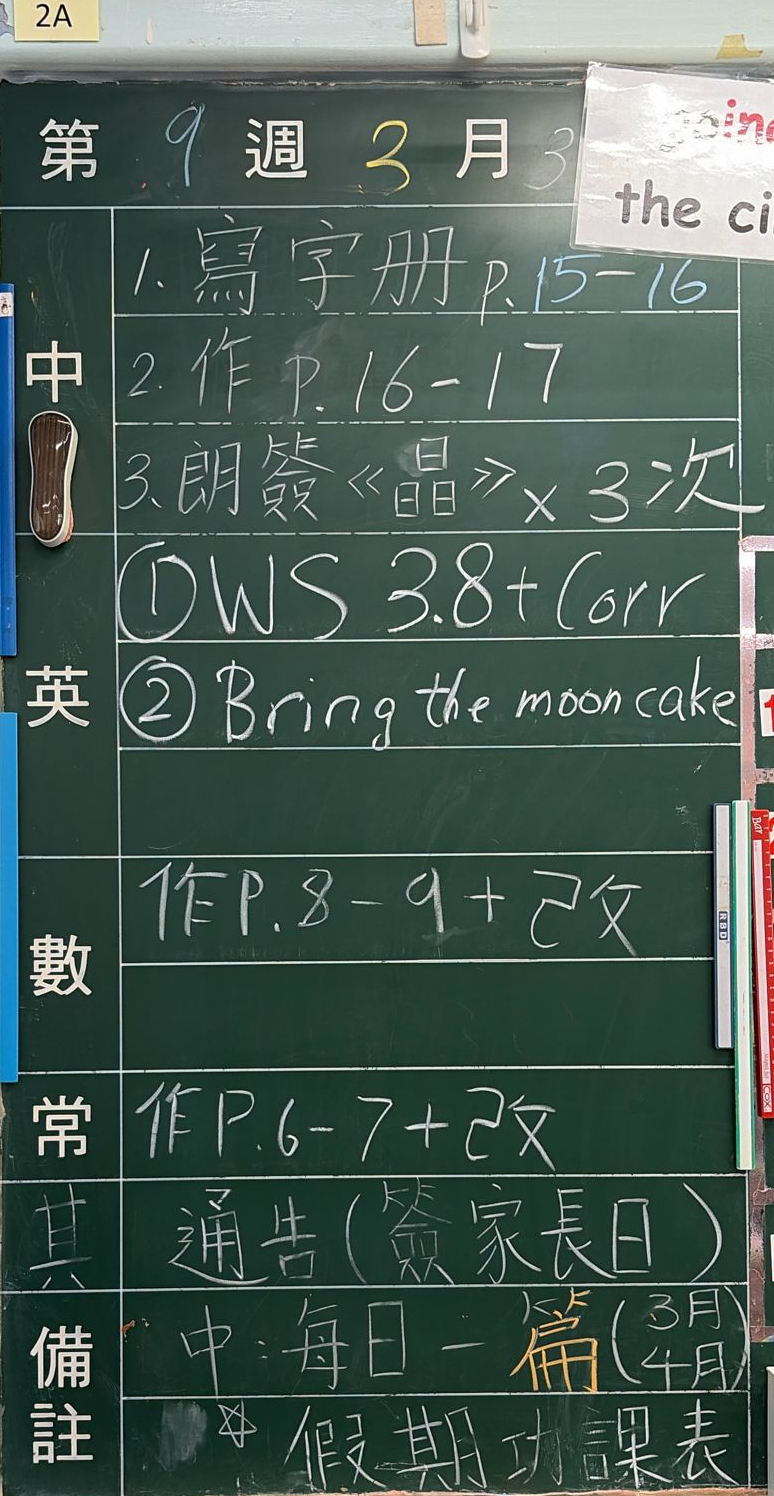 2A
第 9 週 3 月 3
the ci
中
1. 寫字册 p. 15-16
2. 作 p. 16-17
3. 朗簽《晶》x 3次
英
① WS 3.8 + Corr
② Bring the moon cake
數
作P. 8-9 + 改
常
作P. 6-7 + 改
其
通告(簽家長日)
備註
中:每日一篇(3月 4月)
☆ 假期功課表
RBD